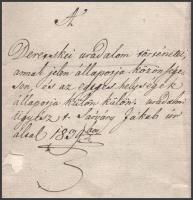 Az
Derecskei uradalom történetei
annak jelen állapotja közönsége-
sen, és az egyes helységek
állapotja külön külön; uradalmi
ügyész t. Sárváry Jakab úr
által 183